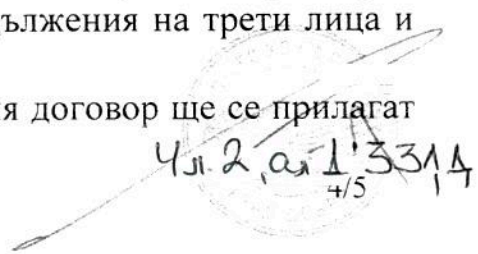 ължения на трети лица и
я договор ще се прилагат
Чл. 2, ал. 1 ЗЗЛД
4/5